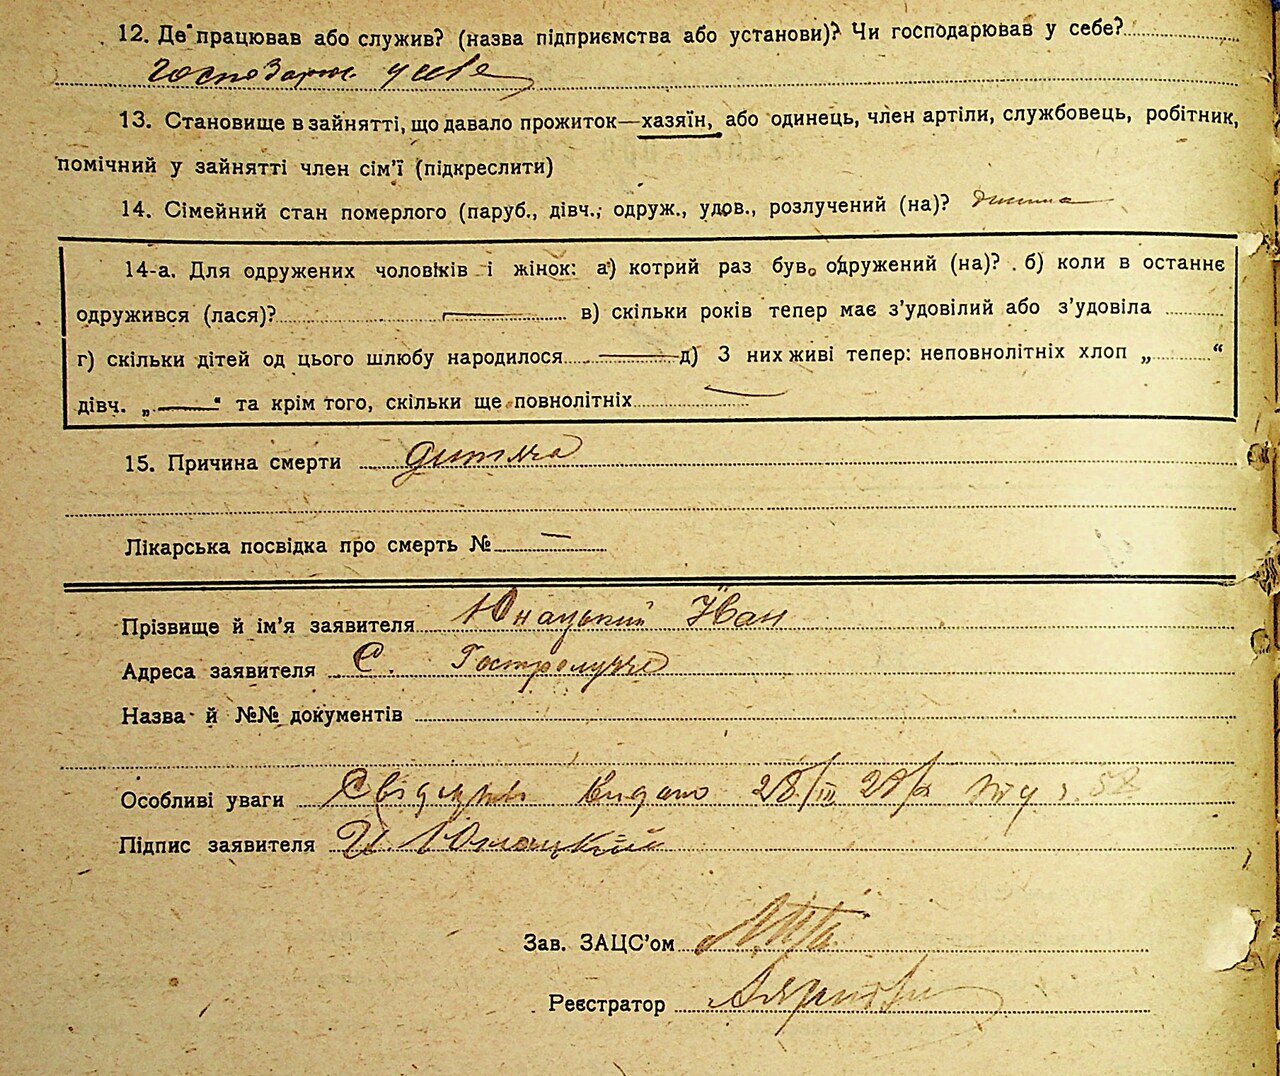 12. Де працював або служив? (назва підприємства або установи)? Чи господарював у себе?
господарюв у себе
13. Становище в зайнятті, що давало прожиток—хазяїн, або одинець, член артіли, службовець, робітник,
помічний у зайнятті член сім'ї (підкреслити)
14. Сімейний стан померлого (паруб., дівч., одруж., удов., розлучений (на)? дитина
14-а. Для одружених чоловіків і жінок: а) котрий раз був одружений (на)? б) коли в останнє
одружився (лася)? в) скільки років тепер має з'удовілий або з'удовіла
г) скільки дітей од цього шлюбу народилося д) З них живі тепер: неповнолітніх хлоп „ “
дівч. „ “ та крім того, скільки ще повнолітніх
15. Причина смерти дитяча
Лікарська посвідка про смерть №
Прізвище й ім'я заявителя Юнацький Іван
Адреса заявителя С. Гостролуччє
Назва й №№ документів
Особливі уваги видано 28/III
Підпис заявителя И Юнацкий
Зав. ЗАЦС'ом
Реєстратор